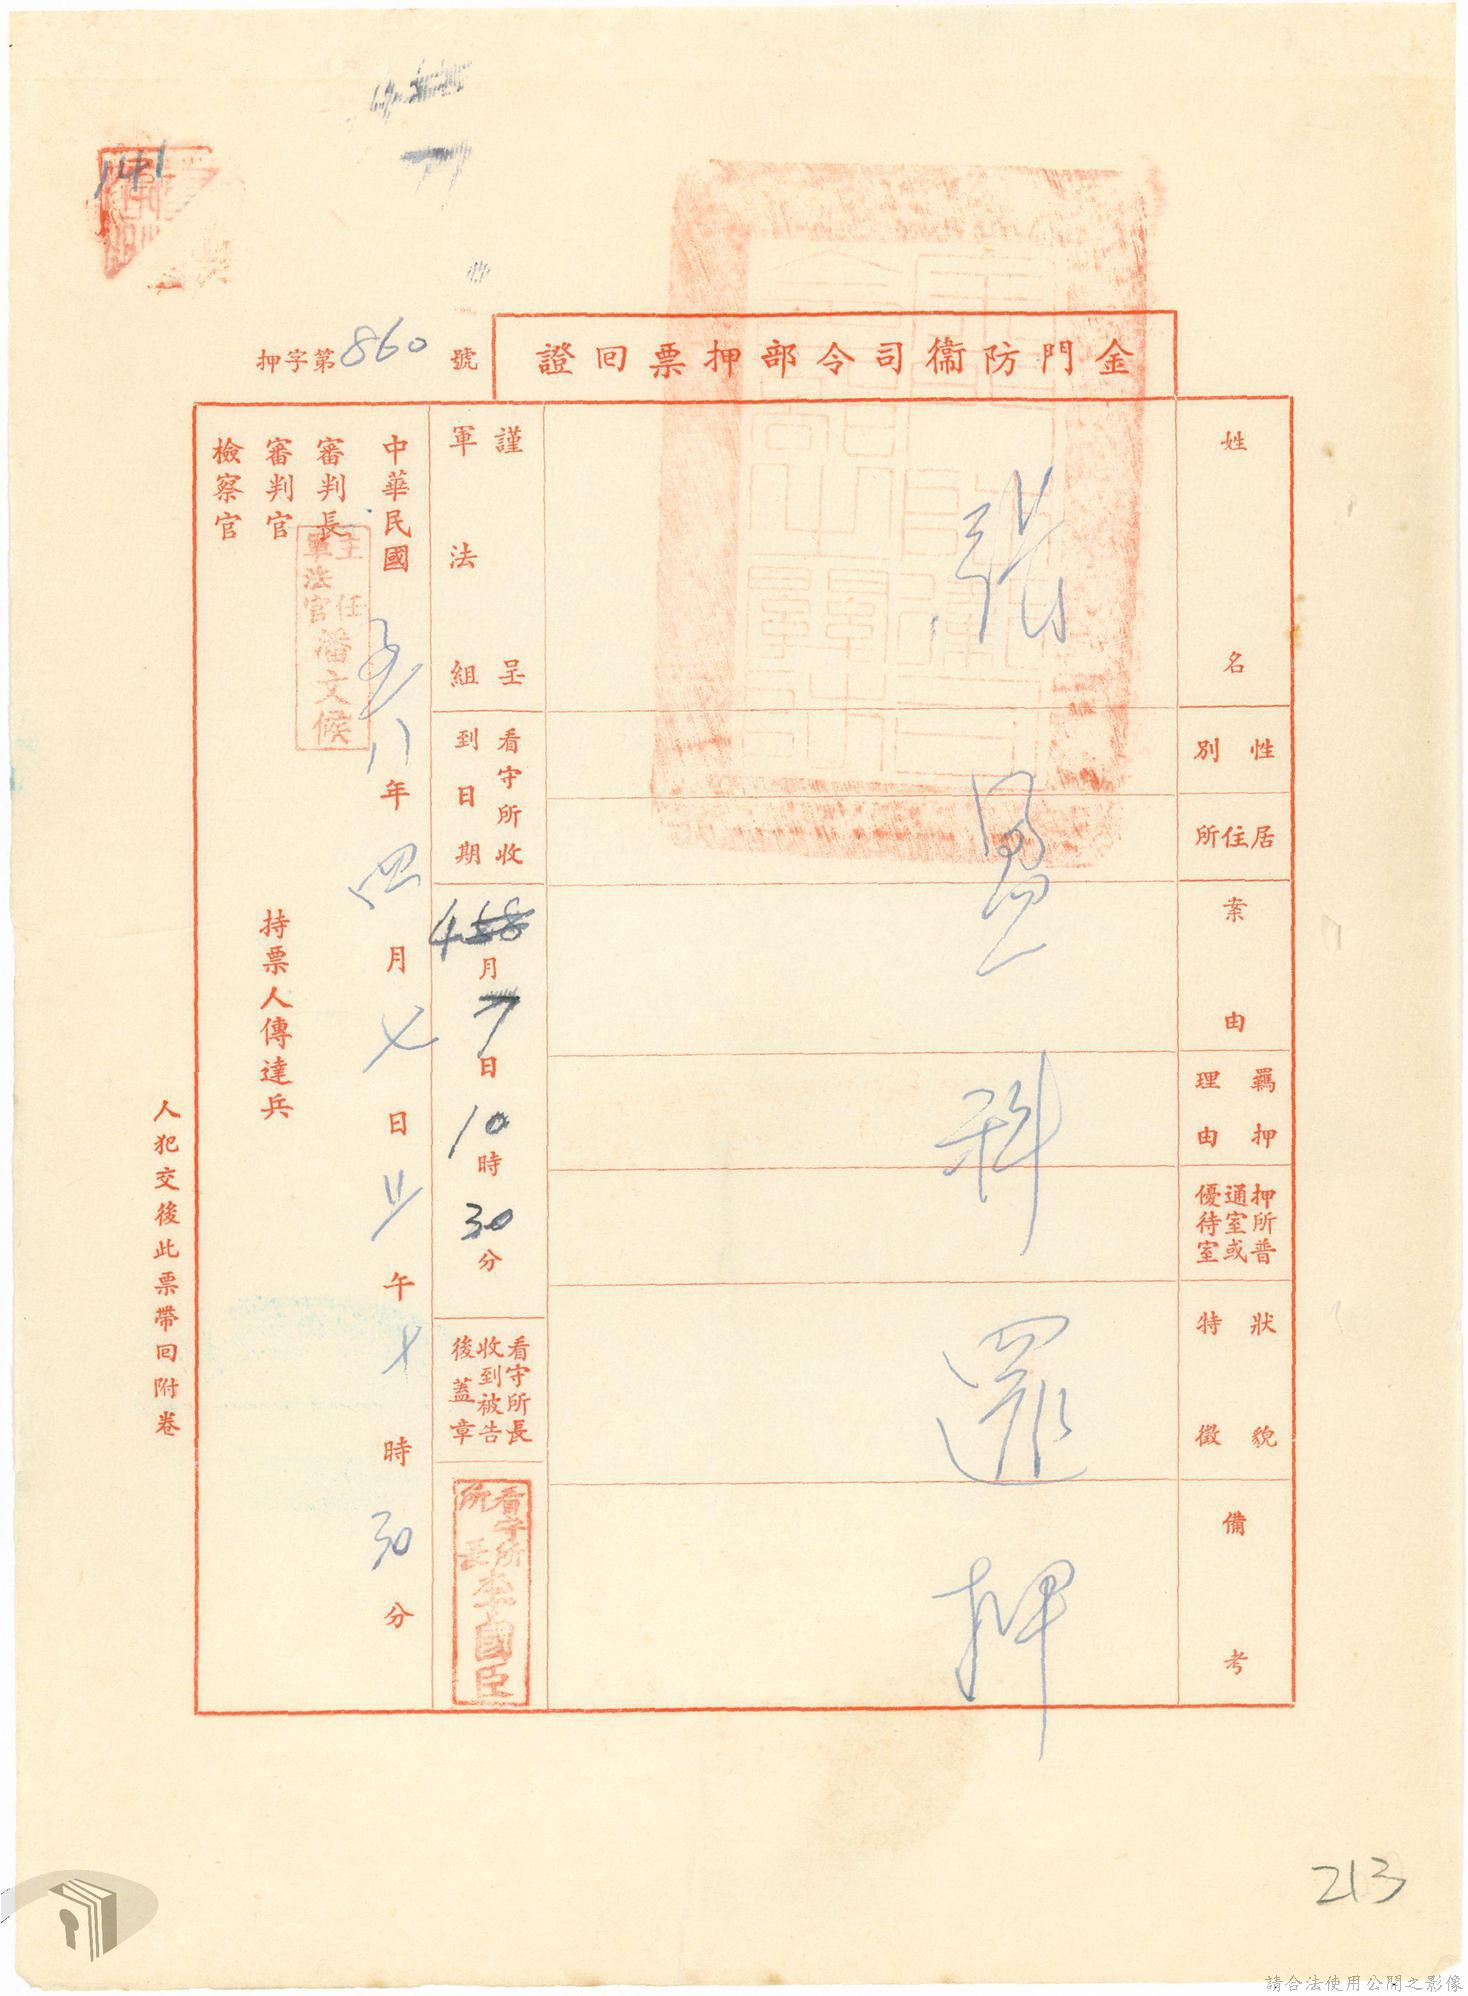 141
金門防衞司令部押票回證
押字第860號
姓名
性別
居住所
案由
羈押理由
押所普通室或優待室
狀貌特徵
備考
張
還押
謹呈
軍法組
看守所收到日期
4月7日10時30分
看守所長收到被告後蓋章
看守所所長李國臣
中華民國五八年四月七日 午十時30分
審判長
審判官
檢察官
主任軍法官潘文候
持票人傳達兵
人犯交後此票帶回附卷
213
請合法使用公開之影像